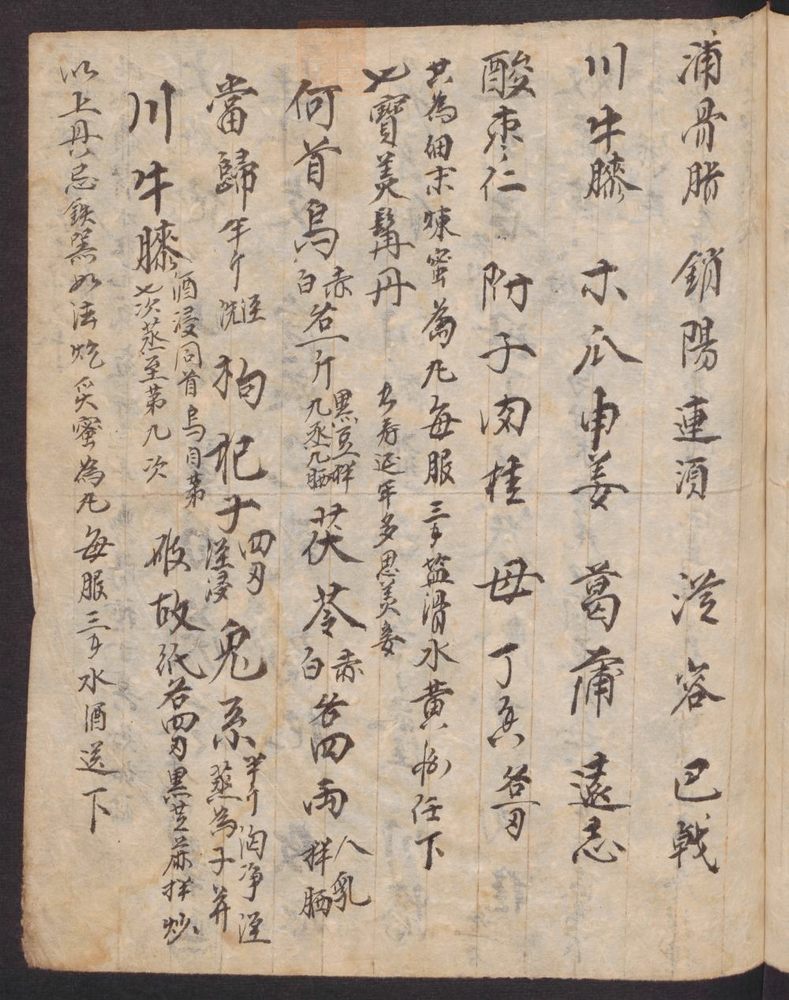 浦骨脂 鎖陽 連須 從容 巴戟
川牛膝 木瓜 申姜 葛蒲 遠志
酸枣仁 附子 肉桂 母丁 各刄
共為細末煉蜜為凡每服三聿盐滑水黄酒任下
七寳美髯丹 長寿延年多思美妾
何首烏赤白各一斤黑豆拌九丞九晒 茯苓赤白各四両人乳拌晒
當歸半斤洗 枸杞子四刄浸 兎糸半斤淘净蒸為子並
川牛膝酒浸同首烏自第七次蒸至第九次 破故紙各四刄黒芝麻拌炒
以上丹忌鉄器如法炮炙蜜為凡每服三聿水酒送下